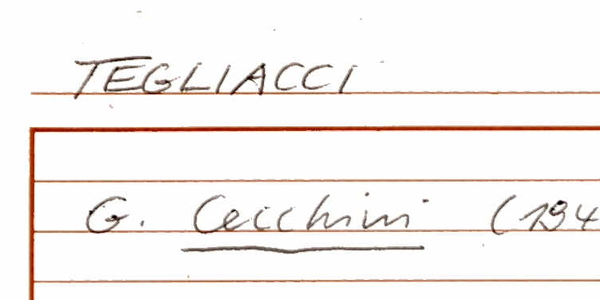 TEGLIACCI
G. Cecchini (194